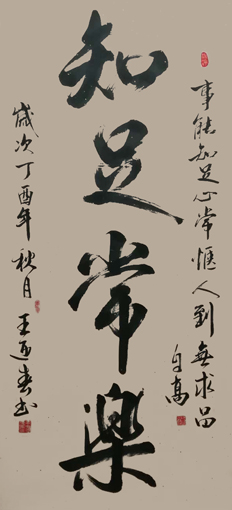 知足常樂
事能知足心常愜人到無求品
自高
歲次丁酉年秋月王迎春书